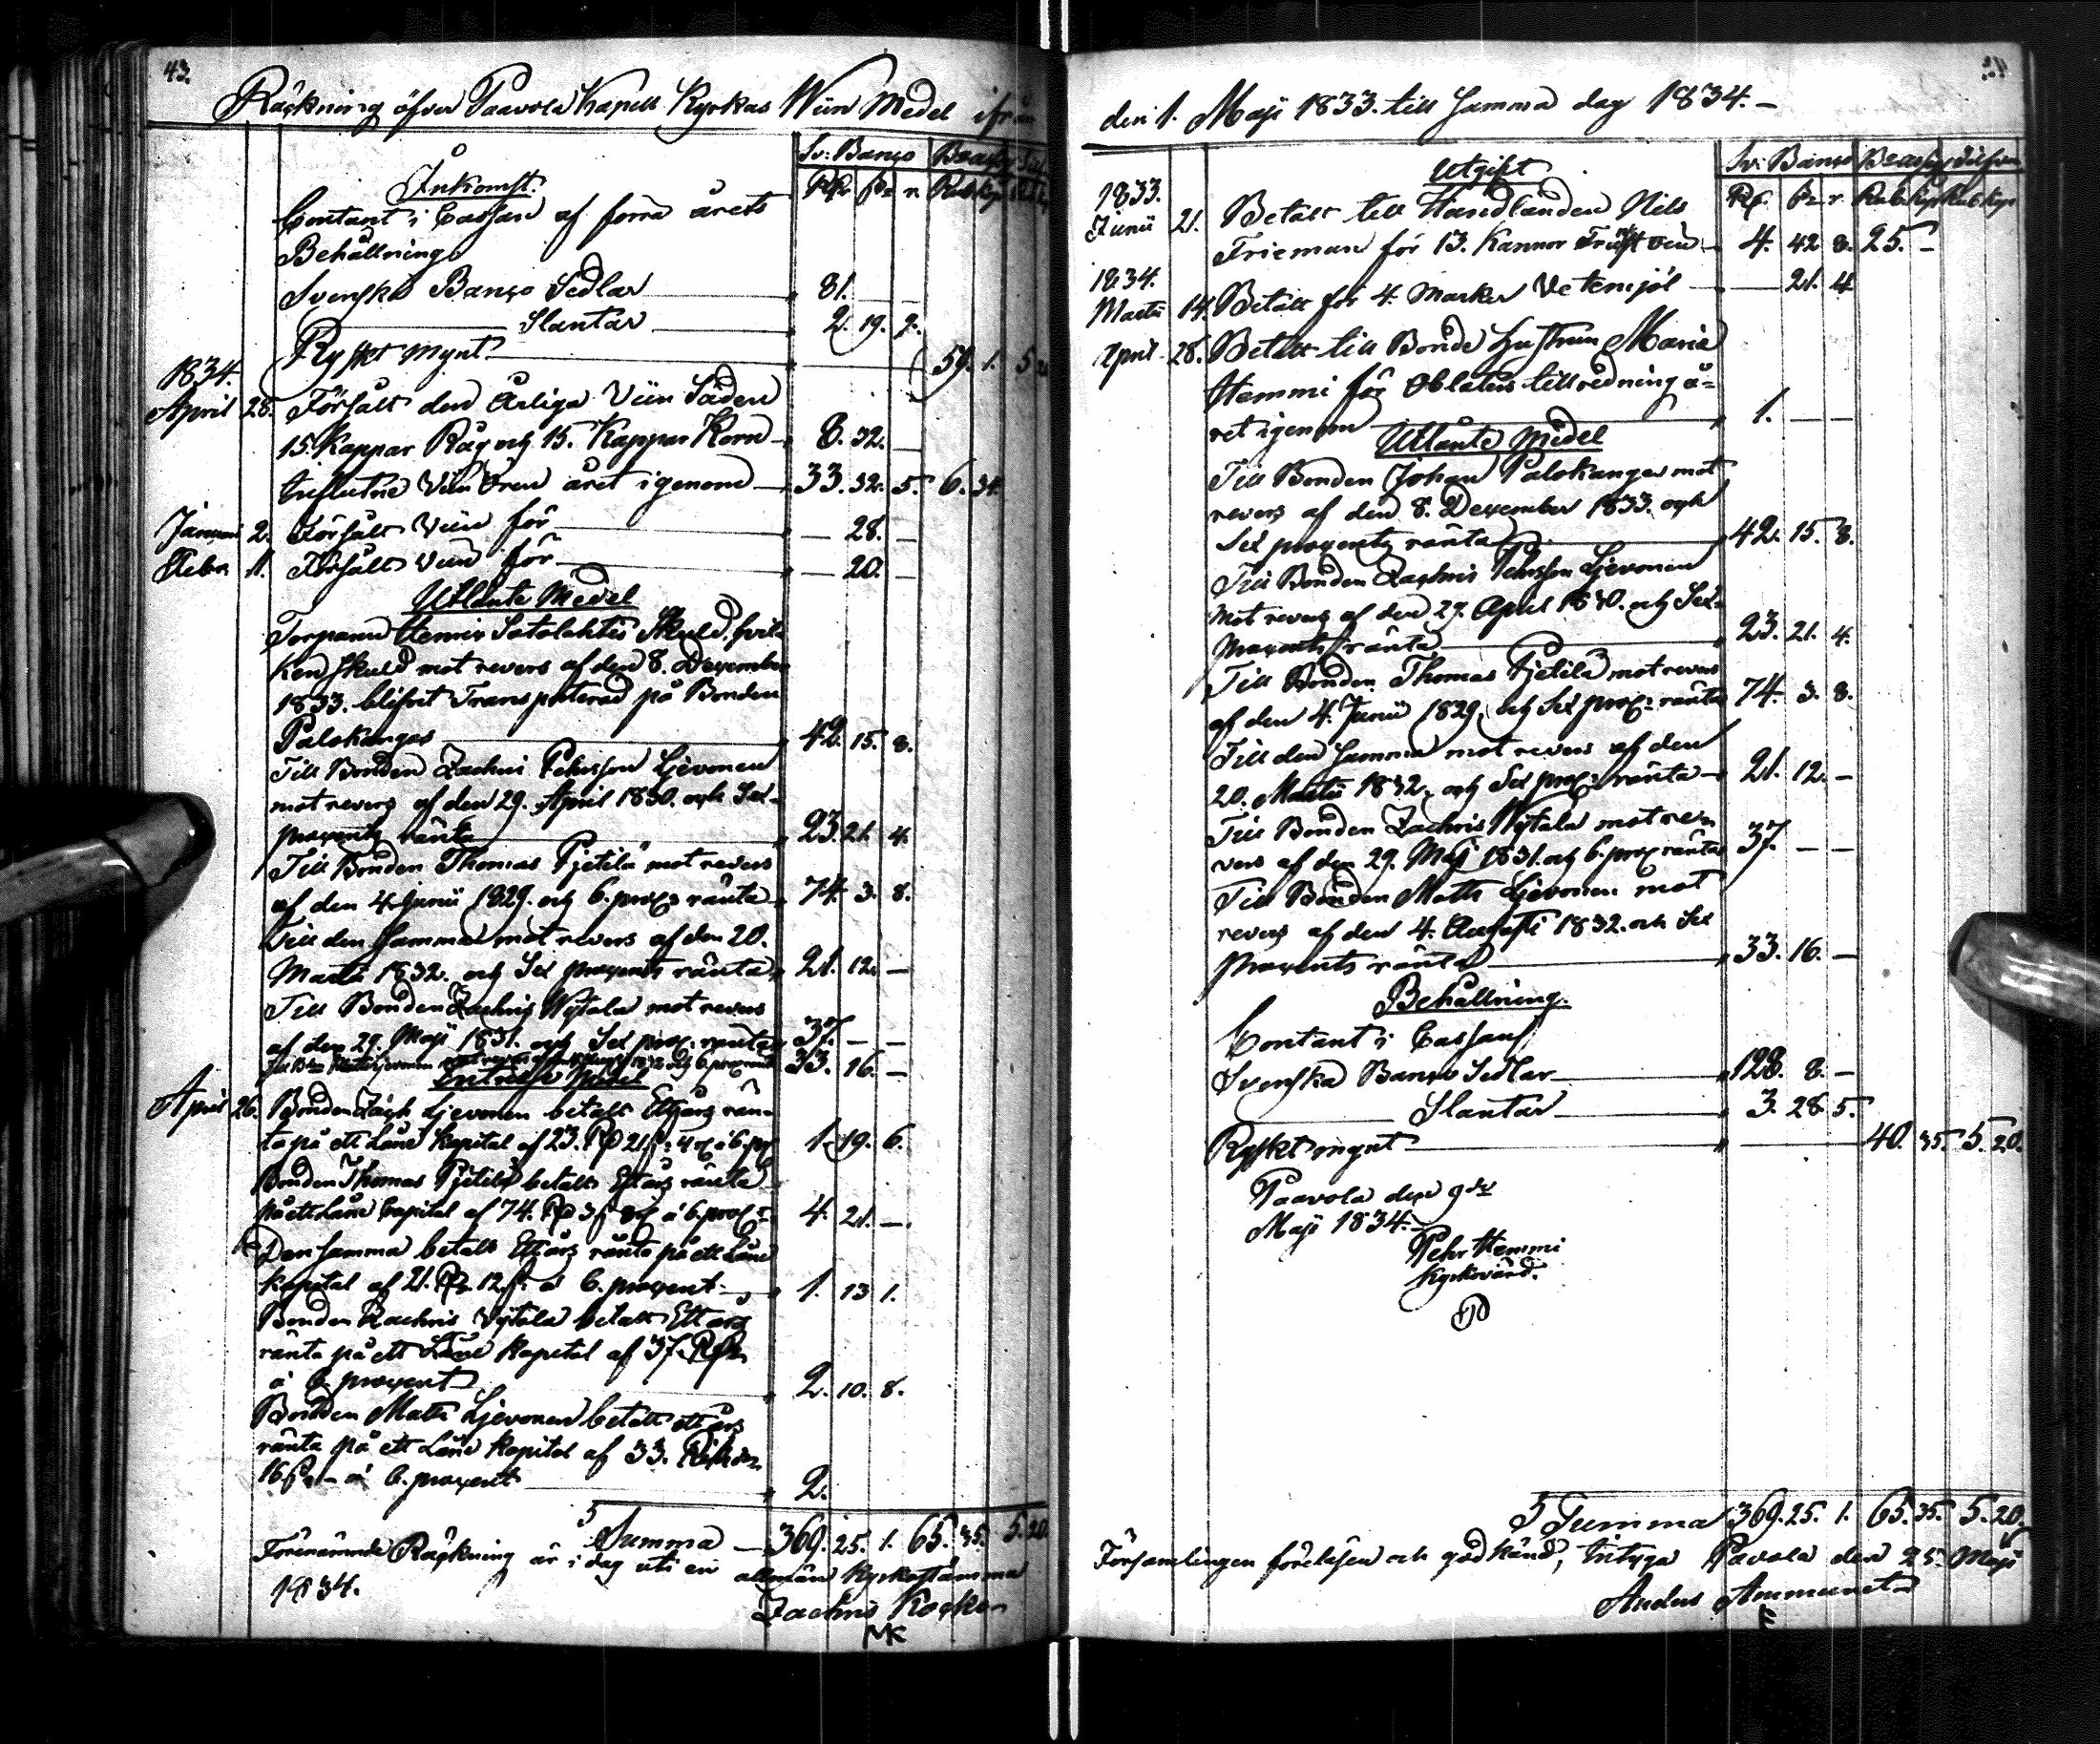 43.
Räckning öfver Paavola Kapell Kyrkas Wiin Medel ifrån
Sv: Banco
Inkomst.
Contant i Cassan af förra årets
Behållning
Svenska Banco Sedlar 81. — —
Slantar 2. 19. 9.
Ryskt mynt 59. 1. 5
1834.
April 28. Försålt den Årliga Viin Säden
15. Kappar Råg och 15. Kappar Korn 8. 32. —
Influtne Viin Ören året igenom 33. 32. 5. 6. 34.
Januari 2. Försålt Viin för — 28. —
Febr. 11. Försålt Viin för — 20. —
Utlånte Medel
Torparen Henric Satolahtis Skuld, hvil-
ken skuld mot revers af den 8. December
1833. blifvit Transporterad på Bonden
Palokangas 42. 15. 8.
Till Bonden Zachris Pehrsson Ljevonen
mot revers af den 29. April 1830. och Sex
procents ränta 23. 21. 4.
Till Bonden Thomas Pjetilä mot revers
af den 4. Junii 1829. och 6. proc: ränta 74. 3. 8.
Till den Samma mot revers af den 20.
Martii 1832. och Sex procents ränta 21. 12. —
Till Bonden Zachris Wytala mot revers
af den 29. Maji 1831. och Sex proc: ränta 37. — —
33. 16. —
Medel
April 26. Bonden Zach: Ljevonen betalt Ettårs rän-
ta på ett Låne Kapital af 23. Rd 21 s: 4 r: á 6. pr 1. 19. 6.
Bonden Thomas Pjetilä betalt Ettårs ränta
på ett Låne Capital af 74. Rd 3 s 8 r á 6. proc: 4. 21. —
Den samma betalt Ettårs ränta på ett Låne
kapital af 21. Rd 12 s. á 6. procent 1. 13 1.
Bonden Zachris Vytala betalt Ettårs
ränta på ett Låne kapital af 37. Rd
á 6. procent 2. 10. 8.
Bonden Matts Ljevonen betalt ettårs
ränta på ett Låne kapital af 33. Riksd:
16 s — á 6. procent 2.
Summa 369. 25. 1. 65. 35. 5. 20.
Förenämnde Räckning är i dag uti en allmän Kyrkostämma
1834.
Zachris Kocko
den 1. Maji 1833. till samma dag 1834. —
Utgift
Sv: Banco
1833.
Junii 21. Betalt till Handlanden Nils
Frieman för 13. Kannor vin 4. 42 8. 25. —
1834.
Martii 14. Betalt för 4. Marker Vetemjöl — 21. 4
April 28. Betalt till Bonde Hustrun Maria
Hemmi för Oblaters tillredning å-
ret igenom 1. — —
Utlånte Medel
Till Bonden Johan Palokangas mot
revers af den 8. December 1833. och
Sex procents ränta 42. 15. 8.
Till Bonden Zachris Pehrsson Ljevonen
mot revers af den 29. April 1830. och Sex
procents ränta 23. 21. 4.
Till Bonden Thomas Pjetilä mot revers
af den 4. Junii 1829. och Sex proc: ränta 74. 3. 8.
Till den Samma mot revers af den
20. Martii 1832. och Sex proc: ränta 21. 12. —
Till Bonden Zachris Wytala mot re-
vers af den 29. Maji 1831. och 6. proc ränta 37. — —
Till Bonden Matts Ljevonen mot
revers af den 4. Augusti 1832. och Sex
procents ränta 33. 16. —
Behållning.
Contant i Cassan
Svenska Banco Sedlar 128. 8. —
Slantar 3. 28. 5.
Ryskt mynt 40. 35. 5. 20.
Paavola den 9de
Maji 1834.
Pehr Hemmi
Kyrkovärd.
Summa 369. 25. 1. 65. 35. 5. 20.
Församlingen föreläsen och godkänd, intyga Pavola den 25. Maji
Anders Ammunet